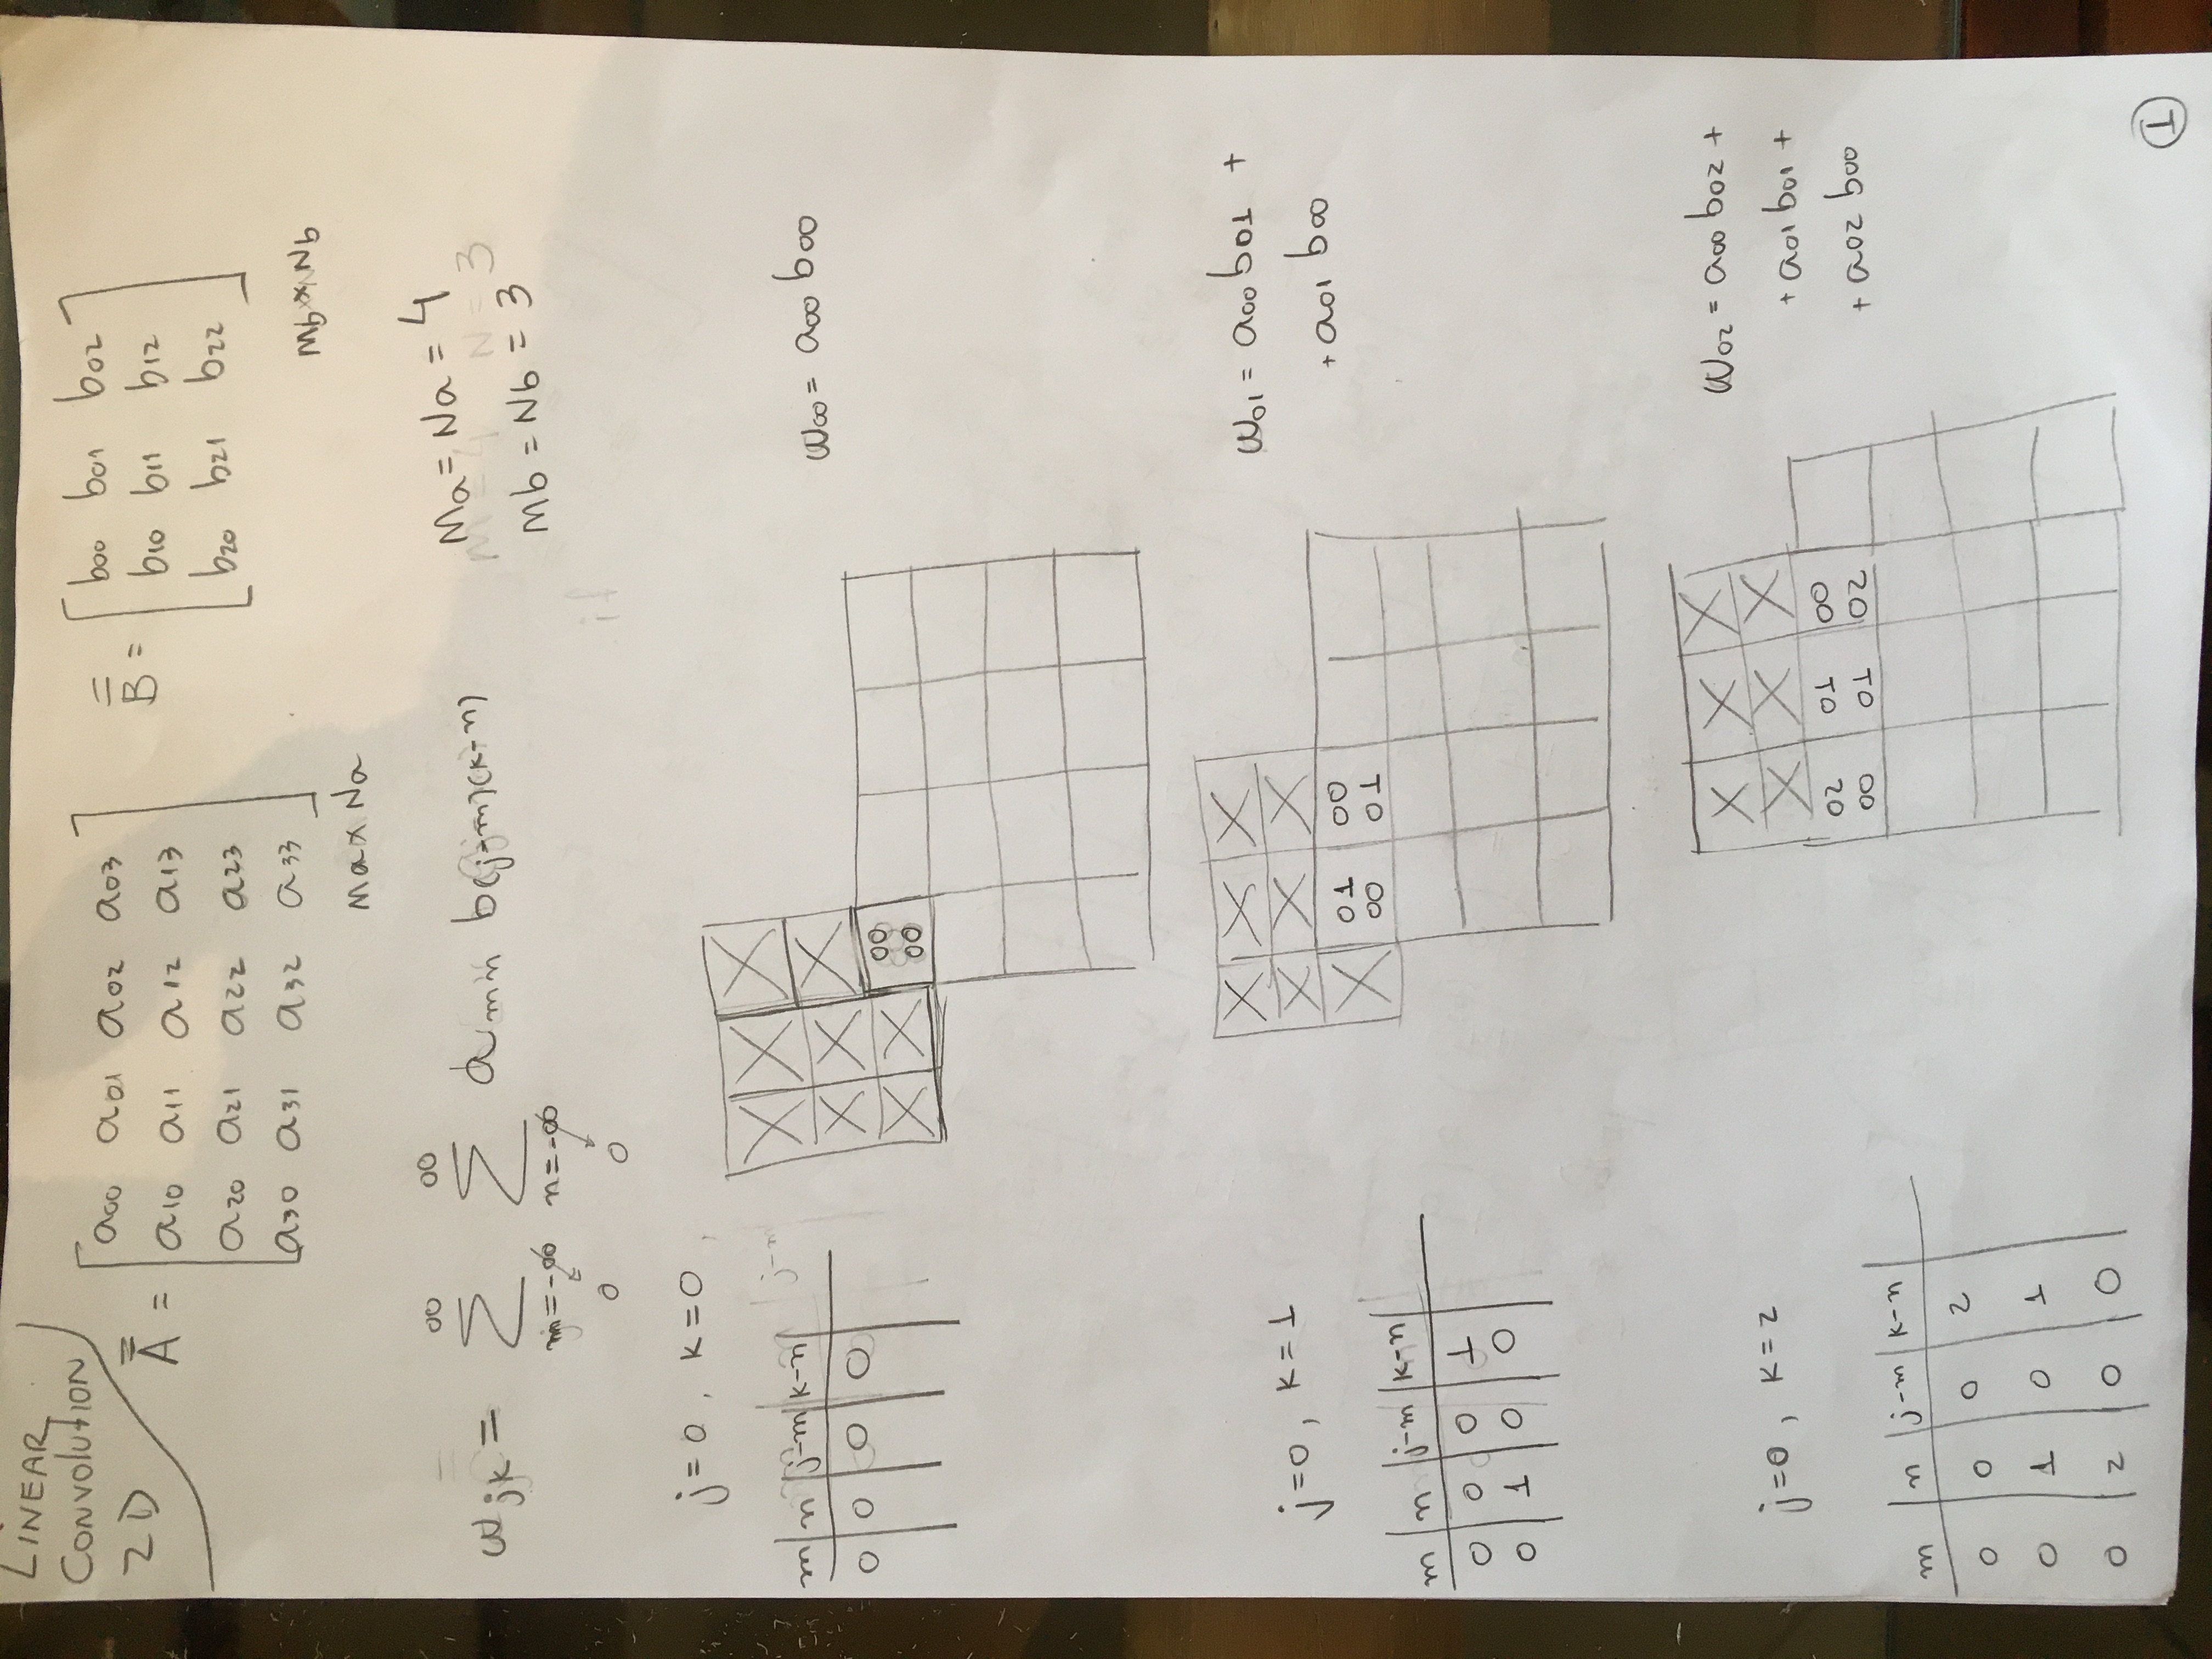 LINEAR
CONVOLUTION
2D
A = [ a00 a01 a02 a03
a10 a11 a12 a13
a20 a21 a22 a23
a30 a31 a32 a33 ]
Ma x Na
B = [ b00 b01 b02
b10 b11 b12
b20 b21 b22 ]
Mb x Nb
wjk = ∞ ∑ m=-∞ ∞ ∑ n=-∞ amn b(j-m)(k-n)
0 0
Ma = Na = 4
Mb = Nb = 3
j=0, k=0
m n j-m k-n
0 0 0 0
X X X
X X X
X X 00
00
w00 = a00 b00
j=0, k=1
m n j-m k-n
0 0 0 1
0 1 0 0
X X X
X X X
X 01 00
00 01
w01 = a00 b01 +
+ a01 b00
j=0, k=2
m n j-m k-n
0 0 0 2
0 1 0 1
0 2 0 0
X X X
X X X
02 01 00
00 01 02
w02 = a00 b02 +
+ a01 b01 +
+ a02 b00
1